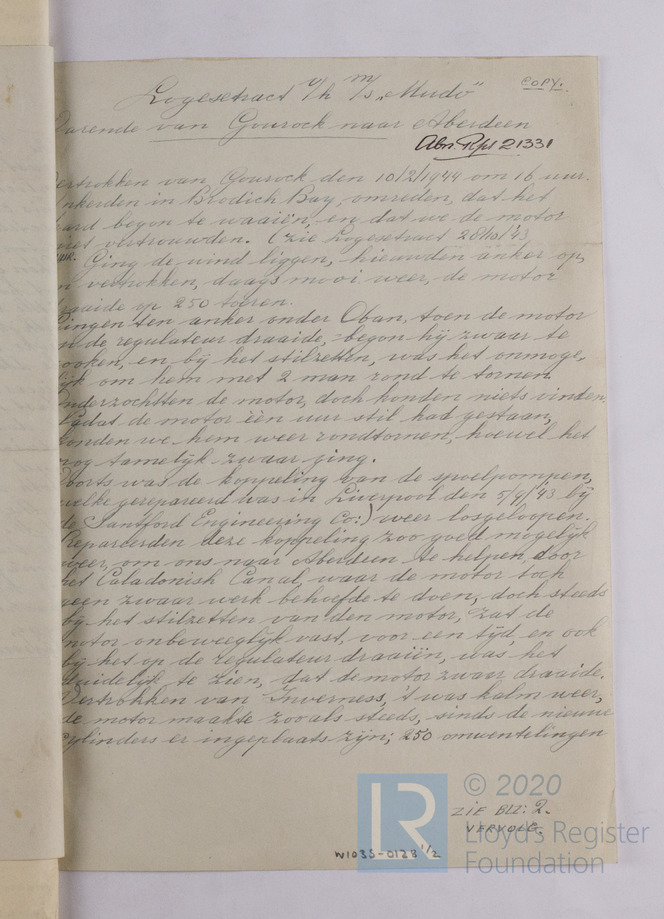 COPY.
Logesetract v/h m/s "Mudo"
Varende van Gourock naar Aberdeen
Abn. Rpt 21331
Vertrokken van Gourock den 10/2/1944 om 16 uur.
Ankerden in Brodich Bay, omreden, dat het
hard begon te waaiën, en dat we de motor
niet vertrouwden. (zie Logesetract 28/10/43
Ging de wind liggen, hieuwden anker op,
en vertrokken, daags mooi weer, de motor
draaide op 250 toeren.
Gingen ten anker onder Oban, toen de motor
de regulateur draaide, begon hij zwaar te
rooken, en bij het stilzetten, was het onmoge-
lijk om hem met 2 man rond te tornen.
Onderzochtten de motor, doch konden niets vinden.
Nadat de motor één uur stil had gestaan,
konden we hem weer rondtornen, hoewel het
nog tamelijk zwaar ging.
Voorts was de koppeling van de spoelpompen,
welke gerepareerd was in Liverpool den 5/9/43 bij
de Santford Engineering Co:) weer losgeloopen.
Repareerden deze koppeling zoo goed mogelijk
weer, om ons naar Aberdeen te helpen, door
het Caladonish Canal, waar de motor toch
geen zwaar werk behoefde te doen, doch steeds
bij het stilzetten van den motor, zat de
motor onbeweeglijk vast, voor een tijd, en ook
bij het op de regulateur draaiën, was het
duidelijk te zien, dat de motor zwaar draaide.
Vertrokken van Inverness, 't was kalm weer,
de motor maakte zooals steeds, sinds de nieuwe
cylinders er ingeplaats zijn, 250 omwentelingen
ZIE BLZ: 2.
VERVOLG.
W1035-0128 1/2
LR
© 2020
Lloyd's Register
Foundation